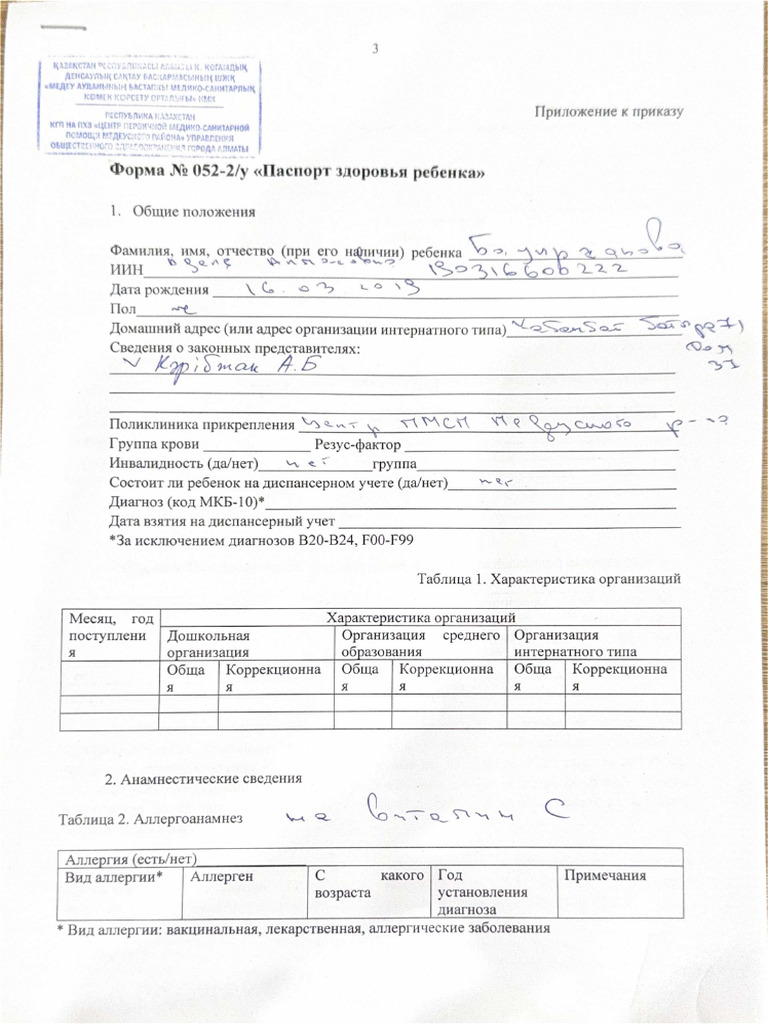 3
ҚАЗАҚСТАН РЕСПУБЛИКАСЫ АЛМАТЫ Қ. ҚОҒАМДЫҚ
ДЕНСАУЛЫҚ САҚТАУ БАСҚАРМАСЫНЫҢ ШЖҚ
«МЕДЕУ АУДАНЫНЫҢ БАСТАПҚЫ МЕДИКО-САНИТАРЛЫҚ
КӨМЕК КӨРСЕТУ ОРТАЛЫҒЫ» КМК
РЕСПУБЛИКА КАЗАХСТАН
КГП НА ПХВ «ЦЕНТР ПЕРВИЧНОЙ МЕДИКО-САНИТАРНОЙ
ПОМОЩИ МЕДЕУСКОГО РАЙОНА» УПРАВЛЕНИЯ
ОБЩЕСТВЕННОГО ЗДРАВООХРАНЕНИЯ ГОРОДА АЛМАТЫ
Приложение к приказу
Форма № 052-2/у «Паспорт здоровья ребенка»
1. Общие положения
Фамилия, имя, отчество (при его наличии) ребенка
ИИН 190316600222
Дата рождения 16.03.2019
Пол ж
Домашний адрес (или адрес организации интернатного типа) Кабанбай батыра 71,
Сведения о законных представителях: дом
Кәрібжан А.Б 37
Поликлиника прикрепления Центр ПМСП Медеуского р-на
Группа крови Резус-фактор
Инвалидность (да/нет) нет группа
Состоит ли ребенок на диспансерном учете (да/нет) нет
Диагноз (код МКБ-10)*
Дата взятия на диспансерный учет
*За исключением диагнозов B20-B24, F00-F99
Таблица 1. Характеристика организаций
Месяц, год Характеристика организаций
поступлени Дошкольная Организация среднего Организация
я организация образования интернатного типа
Обща Коррекционна Обща Коррекционна Обща Коррекционна
я я я я я я
2. Анамнестические сведения
Таблица 2. Аллергоанамнез на витамин С
Аллергия (есть/нет)
Вид аллергии* Аллерген С какого Год Примечания
возраста установления
диагноза
* Вид аллергии: вакцинальная, лекарственная, аллергические заболевания